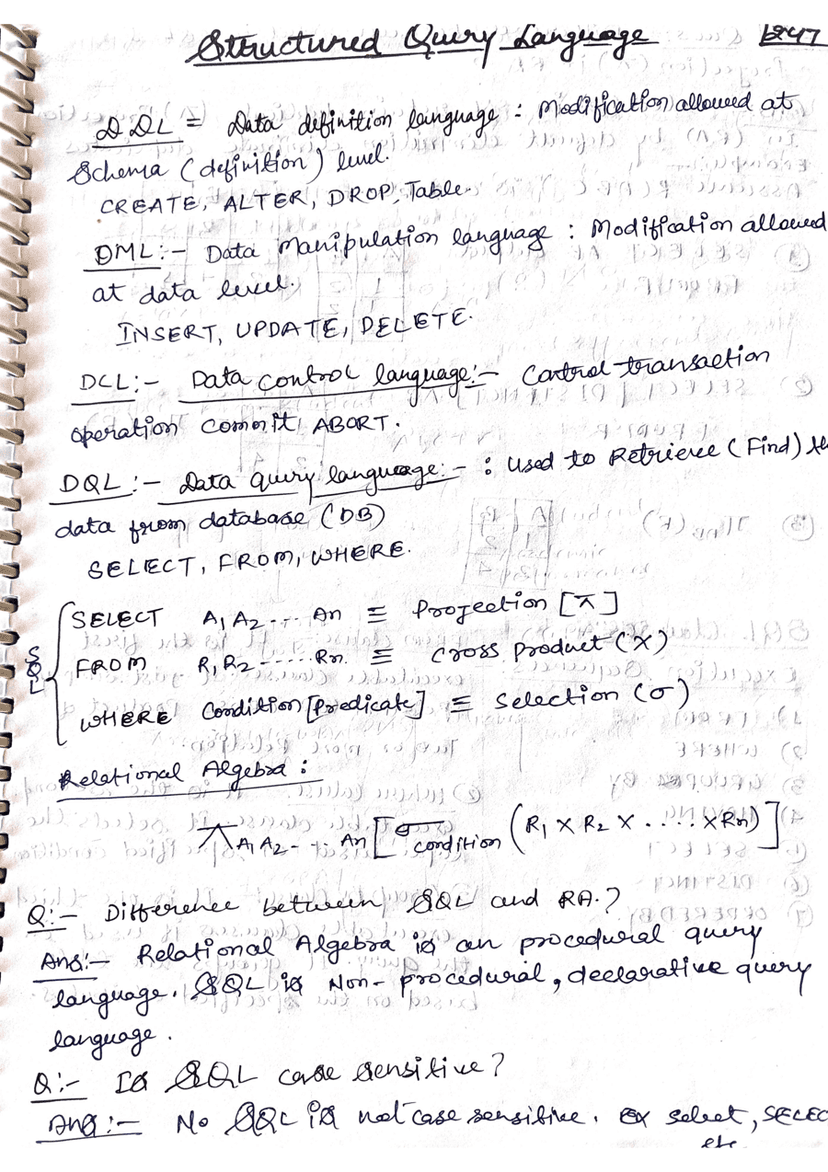 Structured Query Language
DDL = Data definition language : Modification allowed at
Schema (definition) level.
CREATE, ALTER, DROP, Table.
DML :- Data Manipulation language : Modification allowed
at data level.
INSERT, UPDATE, DELETE.
DCL :- Data control language :- Control transaction
operation commit, ABORT.
DQL :- Data query language :- : Used to Retrieve (Find)
data from database (DB)
SELECT, FROM, WHERE.
SELECT A1 A2 .... An ≡ Projection [π]
SQL FROM R1 R2 ...... Rn ≡ cross product (X)
WHERE Condition [Predicate] ≡ selection (σ)
Relational Algebra :
π A1 A2 - ... An [σ condition (R1 X R2 X ..... X Rn)]
Q :- Difference between SQL and RA.?
Ans :- Relational Algebra is an procedural query
language. SQL is Non-procedural, declarative query
language.
Q :- Is SQL case sensitive?
Ans :- No SQL is not case sensitive. Ex select, SELEC
etc